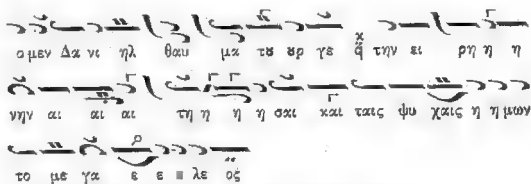 ο μεν Δα νι ηλ θαυ μα τȣ ȣρ γε την ει ρη η η
νην αι αι αι τη η η η σαι και ταις ψυ χαις η η μων
το με γα ε ε λε ος